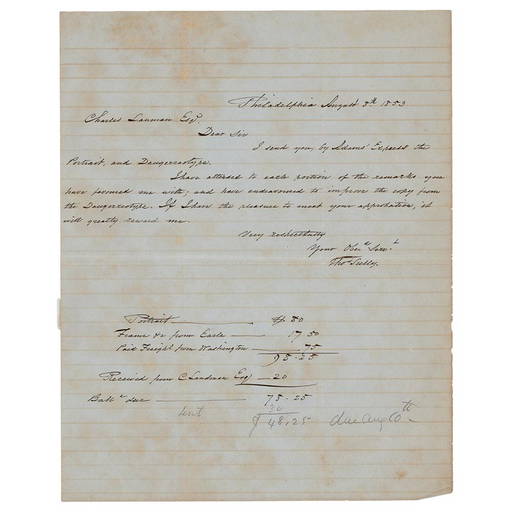 Philadelphia August 8th 1853
Charles Lanman Esqr.
Dear Sir
I send you, by Adams' Express the
Portrait, and Daugerreotype.
I have attended to each portion of the remarks you
have favoured me with; and have endeavoured to improve the copy from
the Daugerreotype. If I have the pleasure to meet your approbation, it
will greatly reward me.
Very respectfully
Your Obet. Servt.
Tho Sully.
Portrait 80
Frame &c from Earle 17.50
Paid Freight from Washington 75
95.25
Received from C Landman Esq 20
Bale due 75.25
sent 30
$ 48.25 due Aug 10th